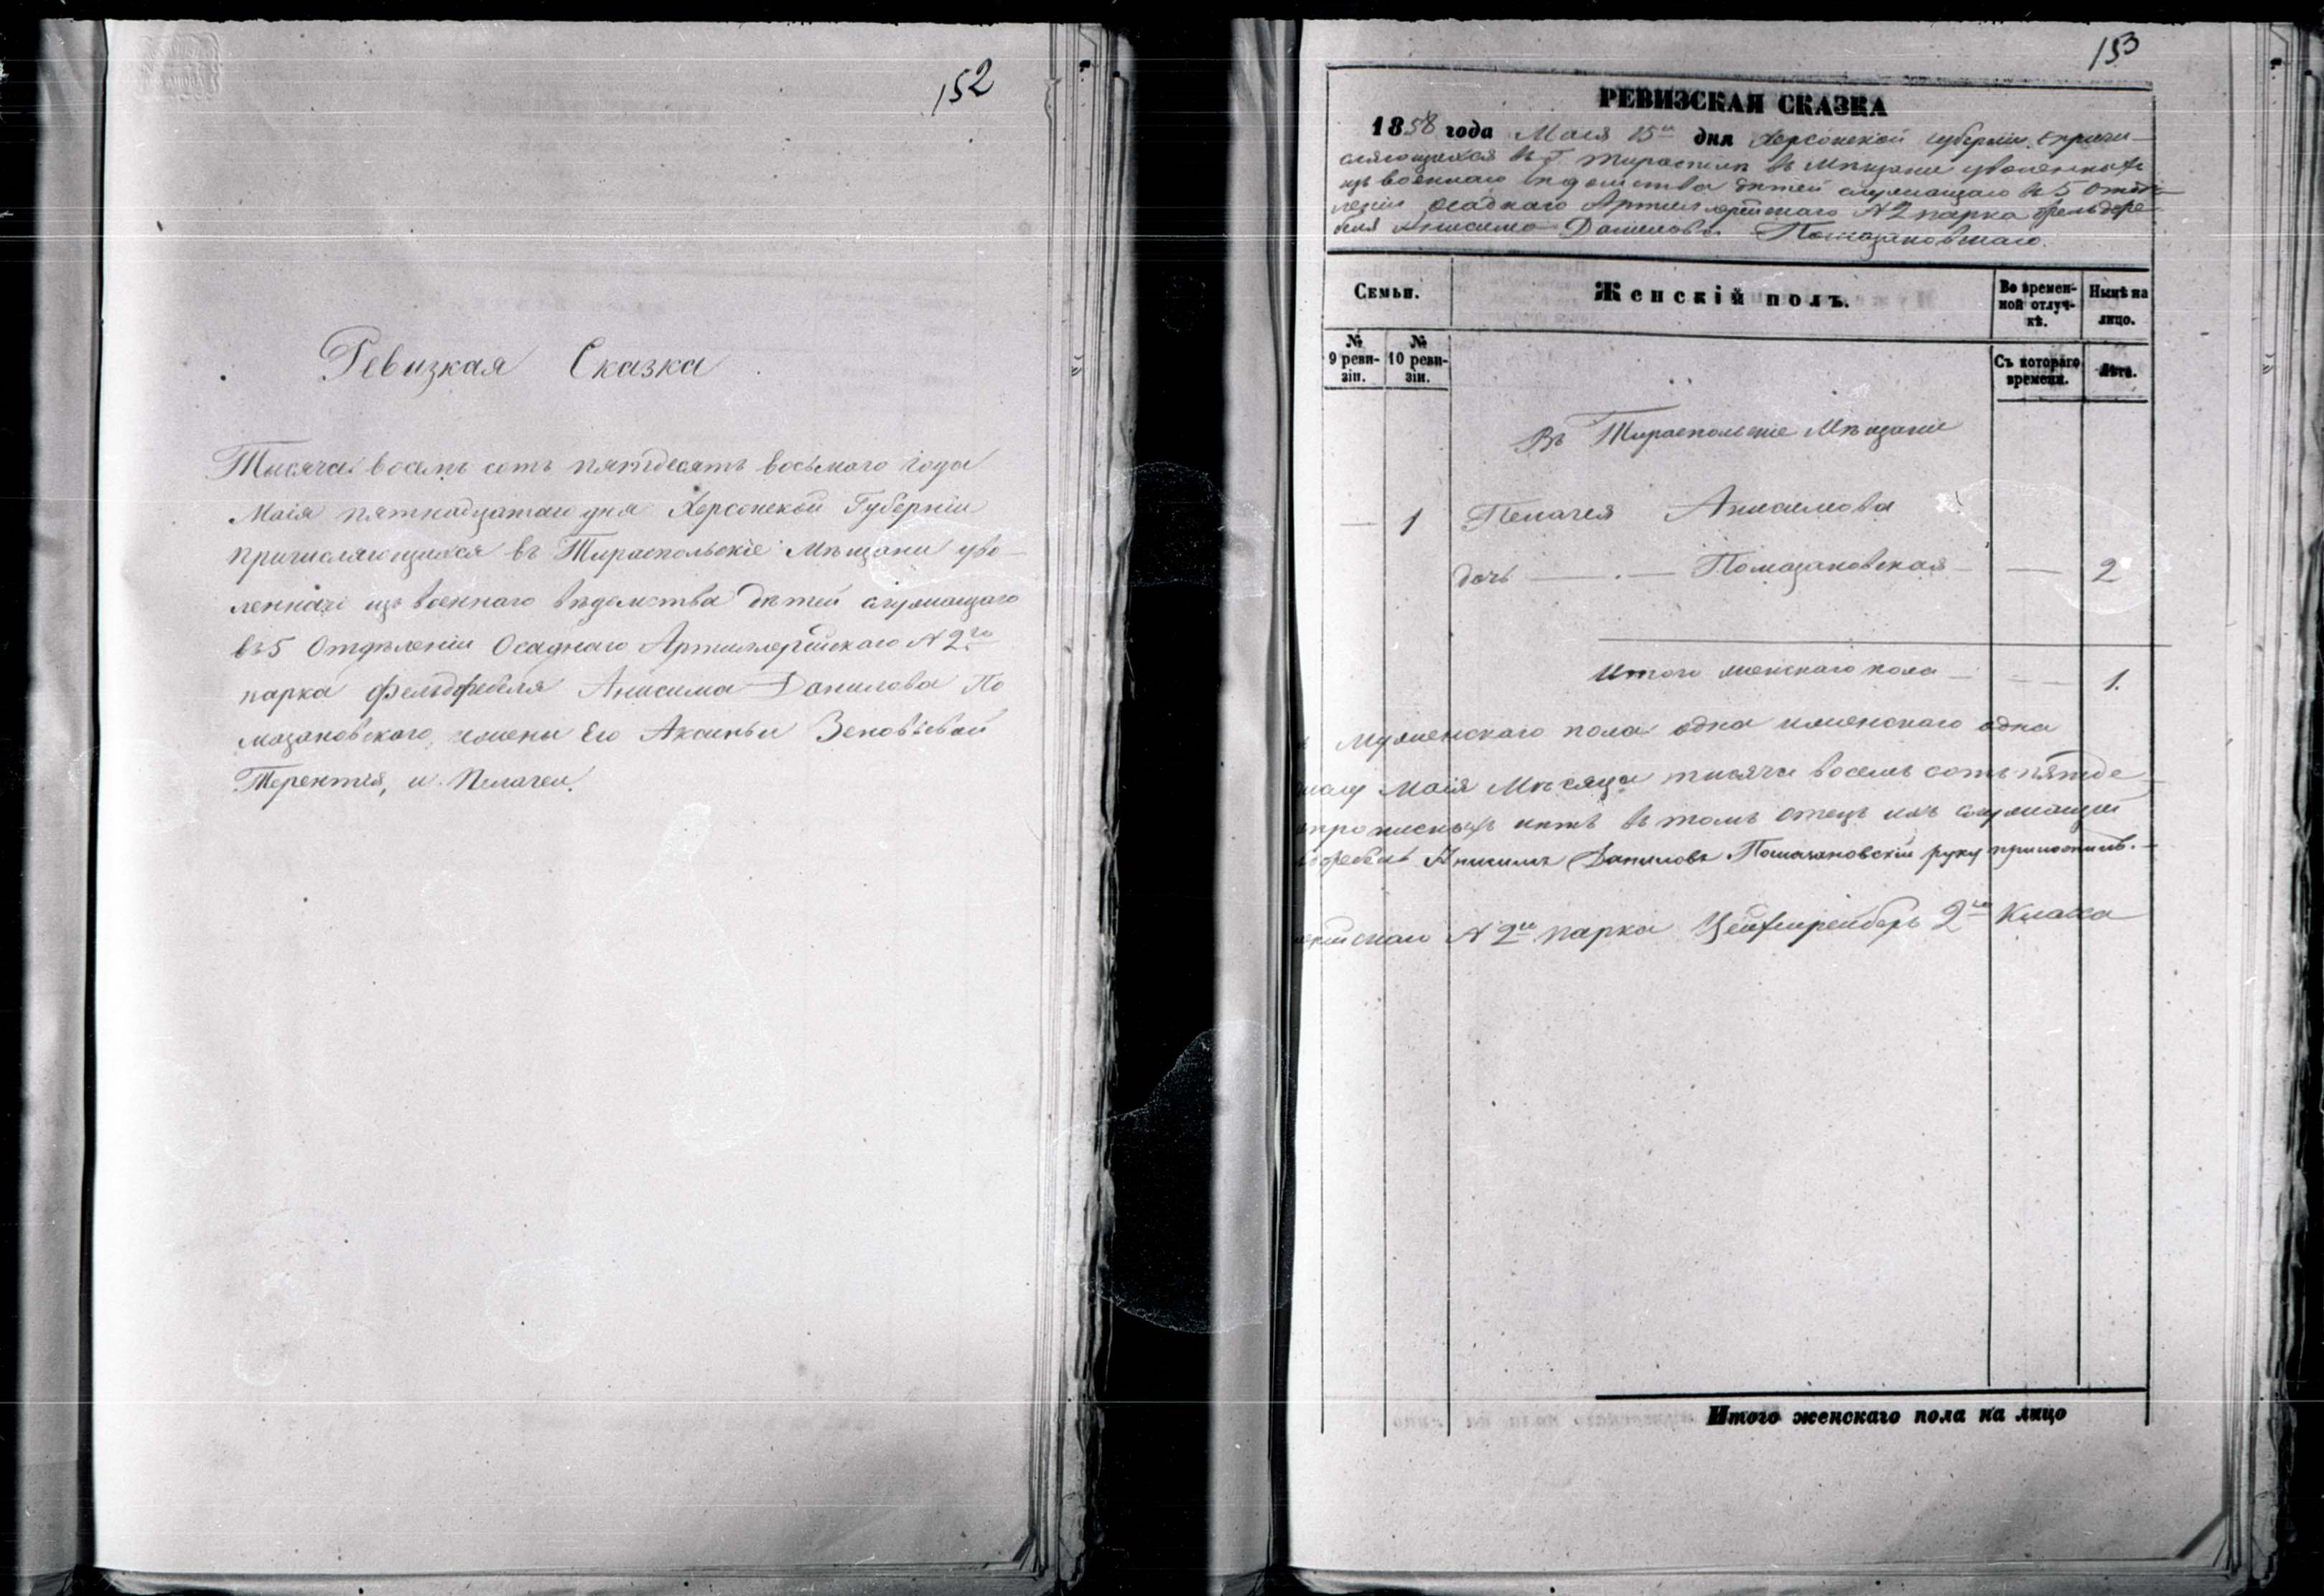 152
Ревизкая Сказка
Тысяча восемь сотъ пятдесятъ восьмого года
Маія пятнадцатаго дня Херсонской Губерніи
причисляющихся въ Тираспольскіе Мѣщани уво-
ленначе изъ военнаго вѣдомства дѣтей служащаго
въ 5 Отдѣленіи Осаднаго Артиллерійскаго N 2го
парка Фельдфебеля Анисима Данилова По
мазановского, жены Его Аксиньи Зеновьевой
Терентія, и Пелагеи.
153
РЕВИЗСКАЯ СКАЗКА
1858 года Маія 15го дня Херсонской губерніи причи-
сляющихся въ Г. Тирасполѣ въ Мѣщани уволенныхъ
изъ военнаго вѣдомства дѣтей служащаго въ 5 Отдѣ-
леніи осаднаго Артиллерійскаго N 2 парка фельдфе-
беля Анисима Данилова Помазановскаго.
Семьи.
Женскій полъ.
Во времен-
ной отлуч-
кѣ.
Нынѣ на
лицо.
№
9 реви-
зіи.
№
10 реви-
зіи.
Съ котораго
времени.
Лѣта.
Въ Тираспольскіе Мѣщаніе
— 1 Пелагея Анисимова
дочь — . — Помазановская — — 2
Итого женскаго пола — — 1.
Мужескаго пола одна и женскаго одна
Маія Мѣсяца тысяча восемь сотъ пятде
прописныхъ нѣтъ въ томъ отецъ ихъ служащій
Анисимъ Даниловъ Помазановскій руку приложилъ. —
N 2го парка Цейхшрейберъ 2го Класса
Итого женскаго пола на лицо